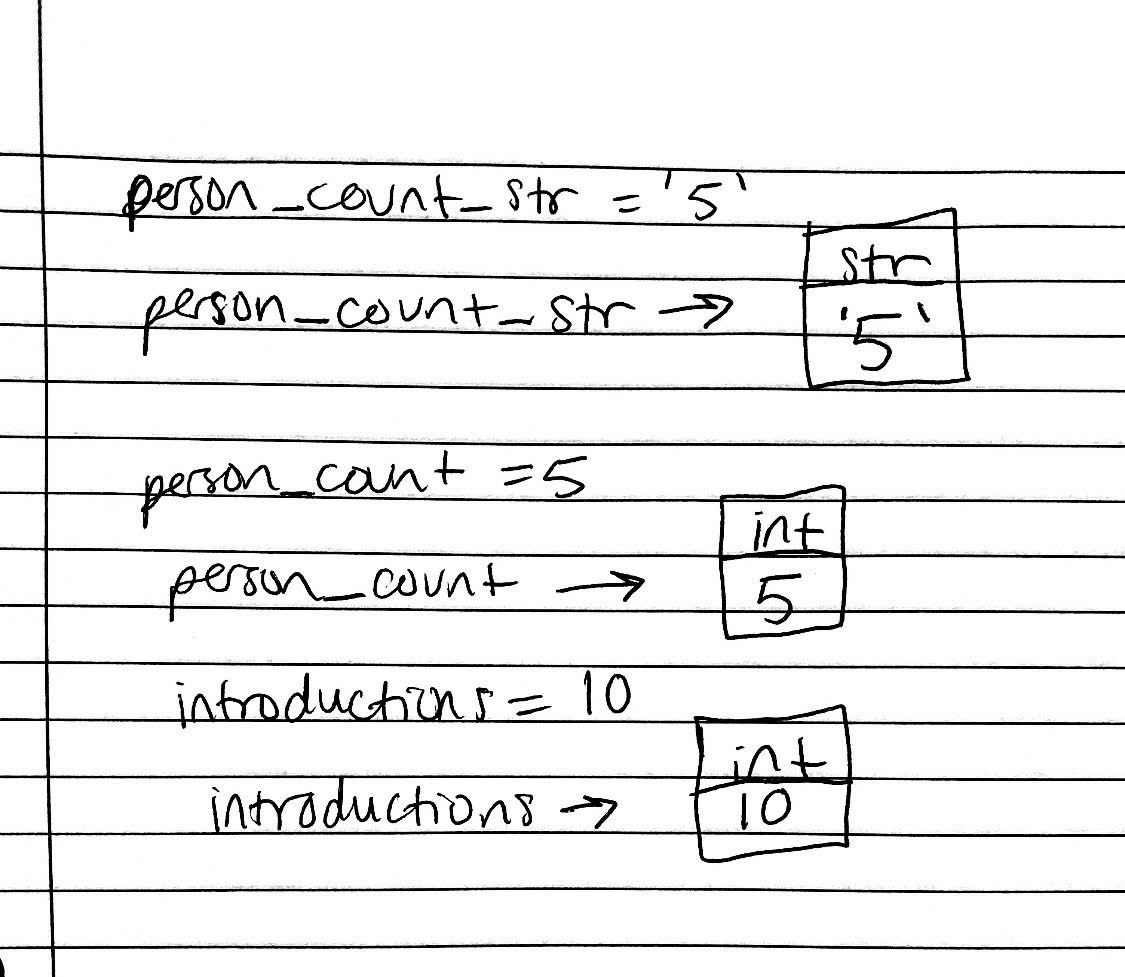 person_count_str = '5'
str
person_count_str → '5'
person_count = 5
int
person_count → 5
introductions = 10
int
introductions → 10